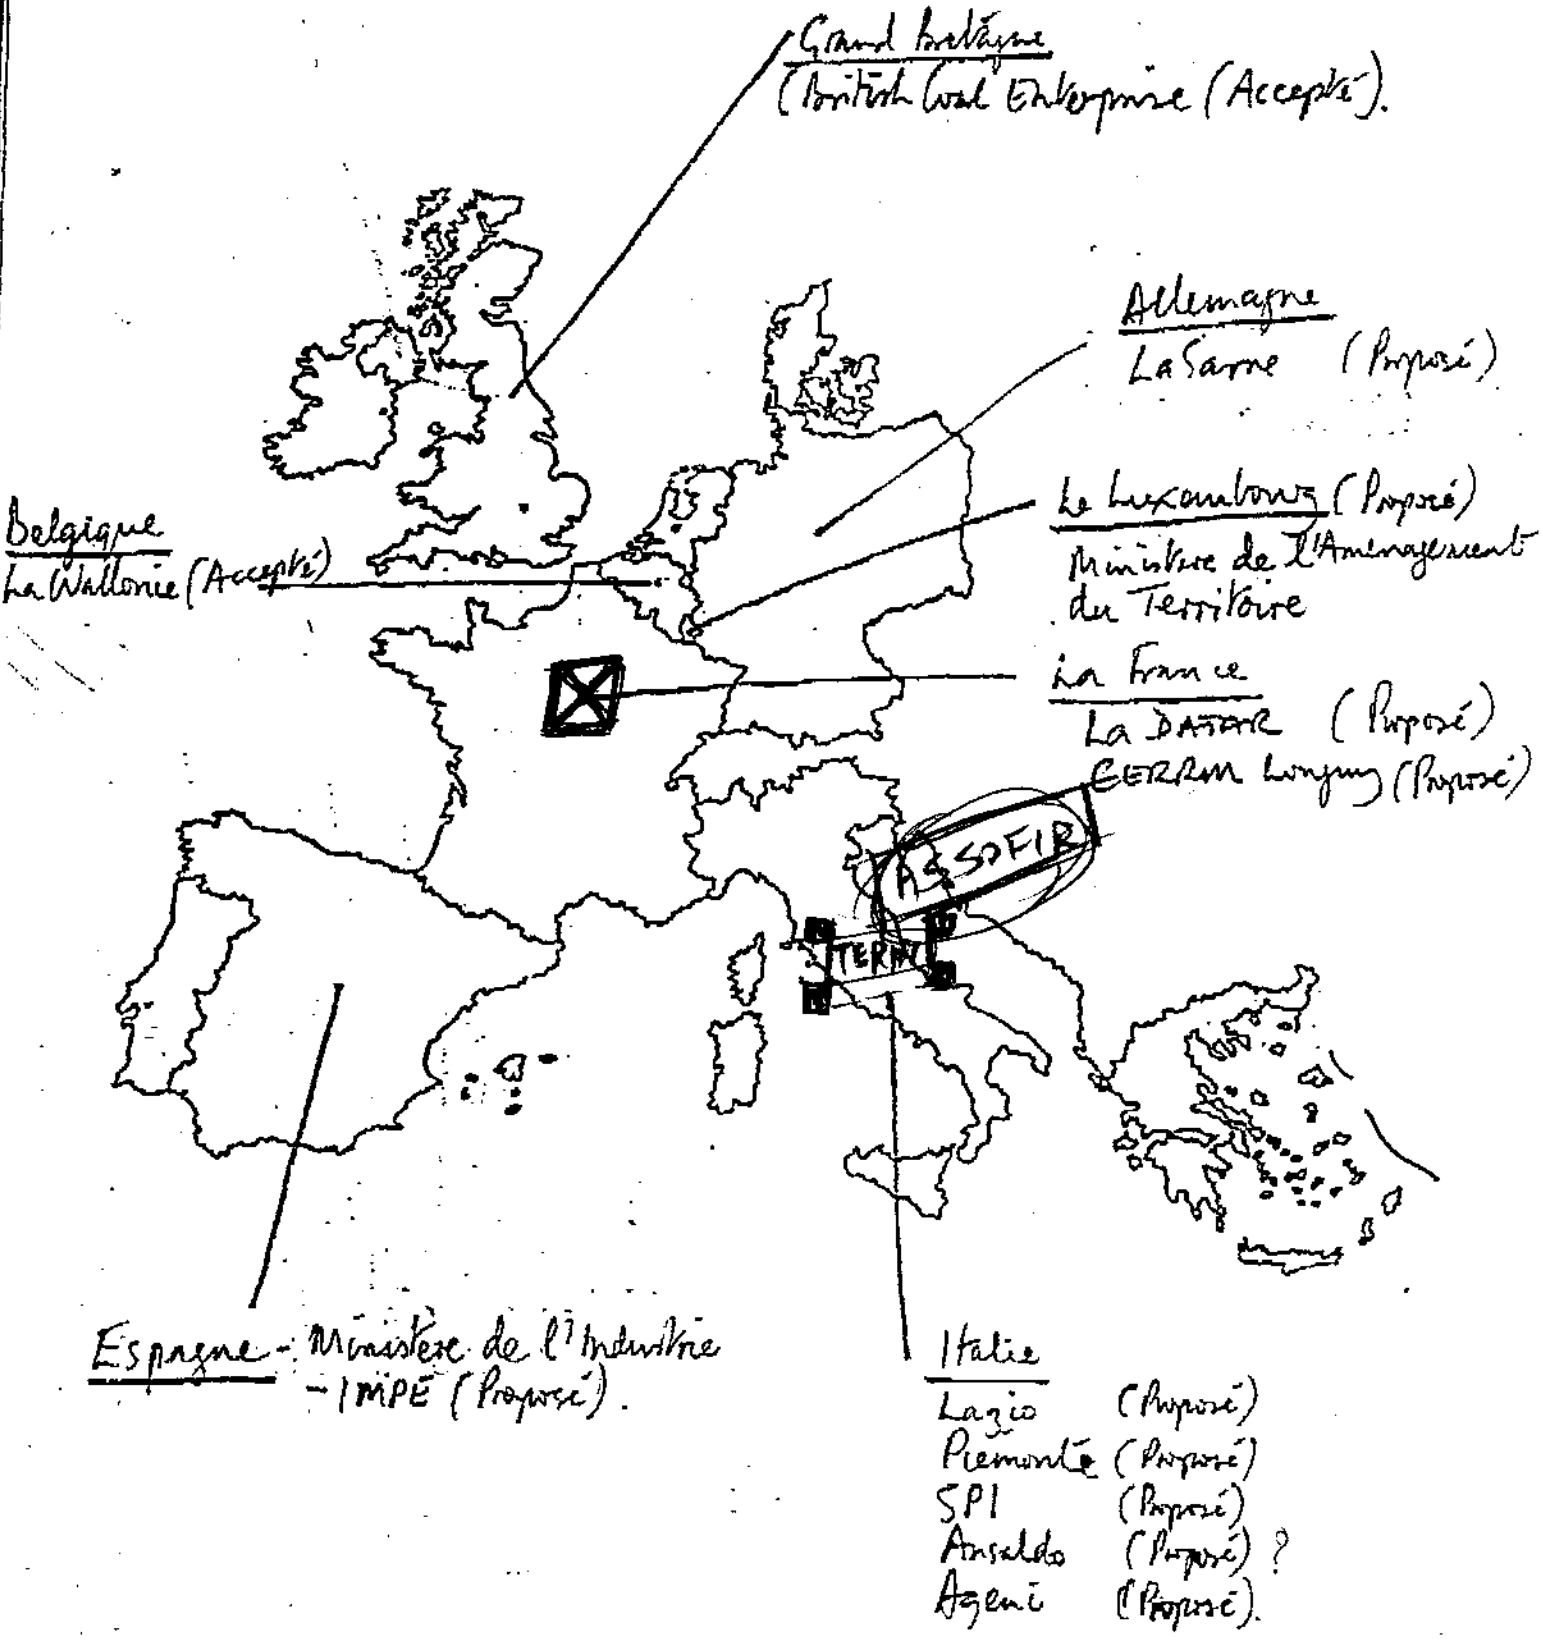 Grand Bretagne
(British Coal Enterprise (Accepté).
Allemagne
La Sarre (Proposé)
Belgique
La Wallonie (Accepté)
Le Luxembourg (Proposé)
Ministere de l'Aménagement
du Territoire
La France
La DATAR (Proposé)
CERRM Longwy (Proposé)
ASSOFIR
TERNI
Espagne - Ministère de l'Industrie
- IMPE (Proposé).
Italie
Lazio (Proposé)
Piemonte (Proposé)
SPI (Proposé)
Ansaldo (Proposé) ?
Ageni (Proposé).